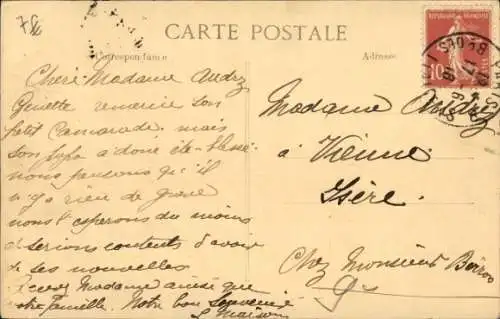 CARTE POSTALE
Correspondance
Adresse
REPUBLIQUE FRANÇAISE
10
Chere Madame Audry
Ginette remercie son
petit Camarade. mais
son papa a donc été blessé
nous pensons qu'il
n'y a rien de grave
nous l'esperons du moins
et serions contents d'avoir
de ses nouvelles
Recevez Madame ainsi que
votre famille. Notre bon Souvenir
Madame Audry
à Vienne
Isère.
Chez Monsieur